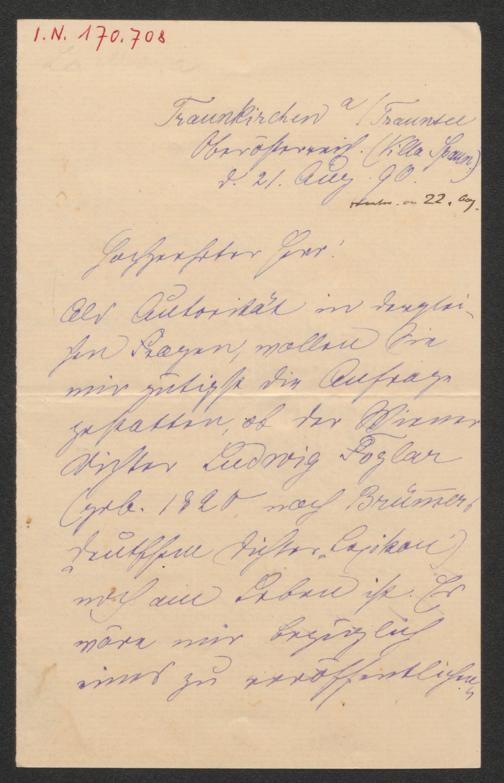 I.N. 170.708
Traunkirchen a/Traunsee
Oberösterreich. (Villa Spaun)
d. 21. Aug. 90.
22. Aug.
Hochgeehrter Herr!
Als Autorität in derglei-
chen Fragen, wollen Sie
mir gütigst die Anfrage
gestatten, ob der Wiener
Dichter Ludwig Foglar
(geb. 1820 nach Brümmers
deutschem Dichter-Lexikon)
noch am Leben ist. Es
wäre mir bezüglich
eines zu veröffentlichen